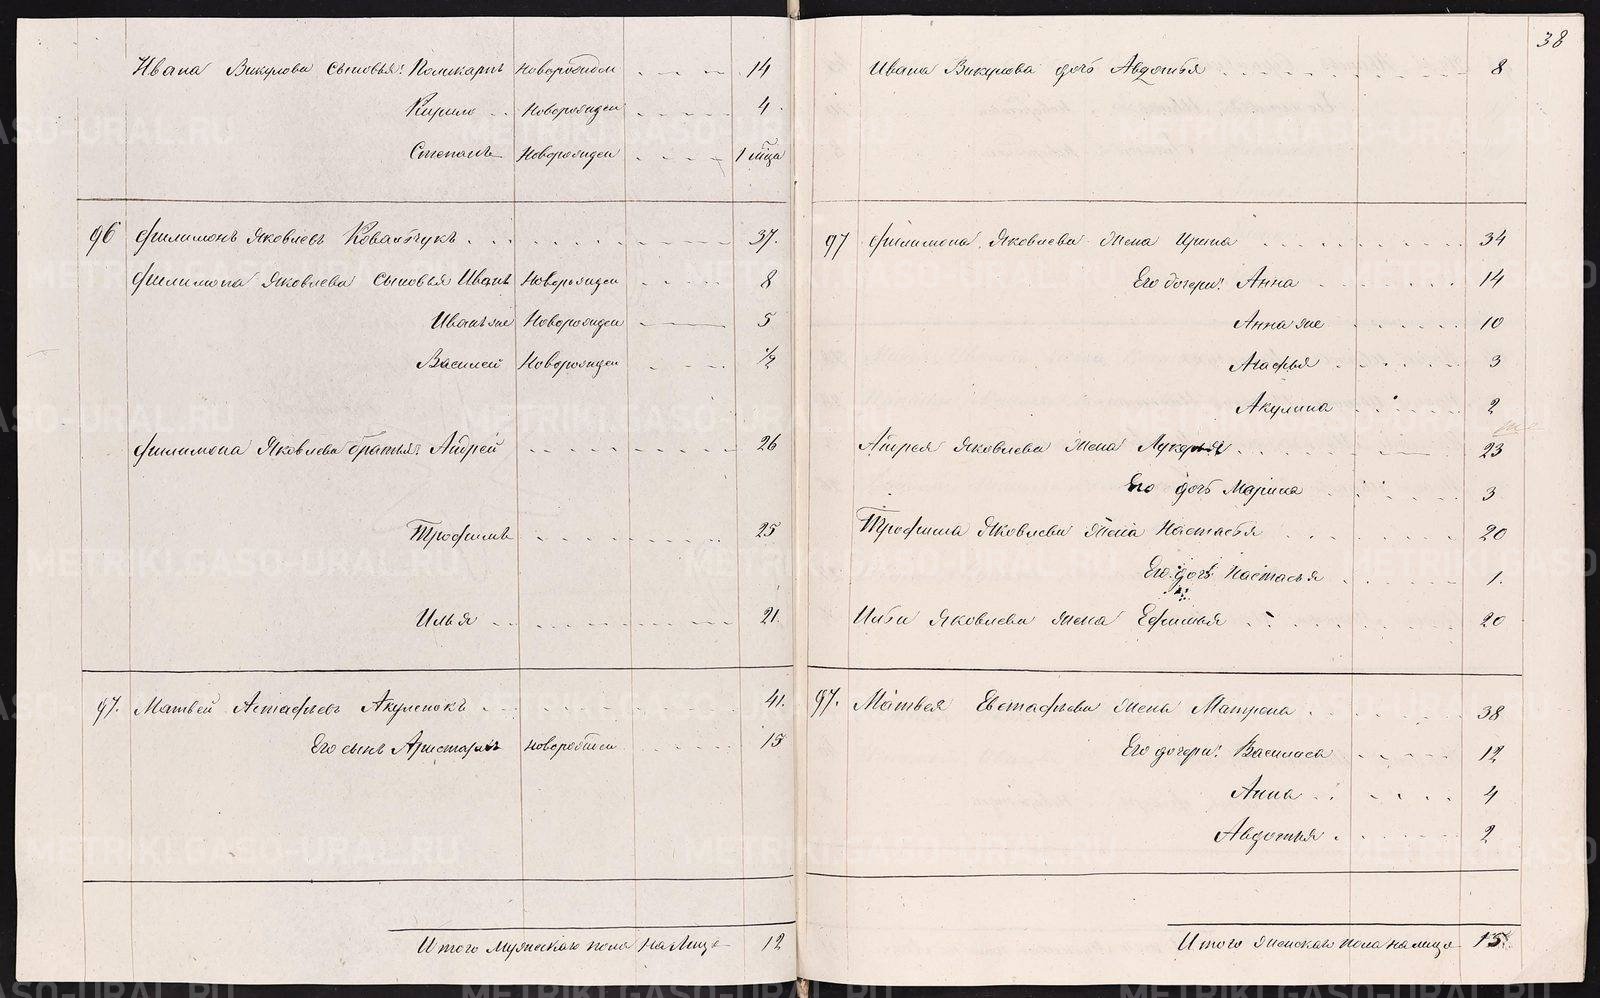 38
Ивана Викулова сыновья: Поликарпъ Новорожден 14
Кирило Новорожден 4
Степанъ Новорожден 1 мца
96 Филимонъ Яковлевъ Ковальчукъ 37.
Филимона Яковлева сыновья Иванъ Новорожден 8
Иванъ же Новорожден 5
Василей Новорожден 1/2
Филимона Яковлева братья: Андрей 26
Трофимъ 25
Илья 21
97. Матвей Астафьевъ Акуленокъ 41.
Его сынъ Аристархъ новорожден 15
Итого мужескаго пола на лицо 12
Ивана Викулова дочь Авдотья 8
97 Филимона Яковлева жена Ирина 34
Его дочери: Анна 14
Анна же 10
Агафья 3
Акулина 2
Андрея Яковлева жена Лукерья 23
Его дочь Марина 3
Трофима Яковлева жена Настасья 20
Его дочь Настасья 1.
Ильи Яковлева жена Ефимья 20
97. Матвея Евстафьева жена Матрона 38
Его дочери: Василиса 12
Анна 4
Авдотья 2
Итого женскаго пола на лицо 15
METRIKI.GASO-URAL.RU